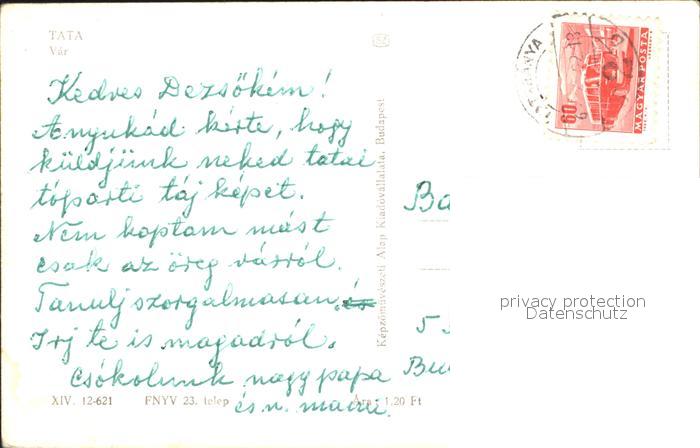 TATA
Vár
Kedves Dezsőkém!
Anyukád kérte, hogy
küldjünk neked tatai
tóparti táj képet.
Nem kaptam mást
csak az öreg várról.
Tanulj szorgalmasan. és
Irj te is magadról.
Csókolunk nagypapa
és n. mama.
XIV. 12-621 FNYV 23. telep Ára: 1,20 Ft
Képzőművészeti Alap Kiadóvállalata, Budapest
60 f
MAGYAR POSTA
Ba
5
Bu
privacy protection
Datenschutz